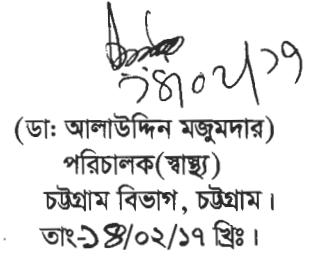 ১৪/০২/১৭
(ডা: আলাউদ্দিন মজুমদার)
পরিচালক(স্বাস্থ্য)
চট্টগ্রাম বিভাগ, চট্টগ্রাম।
তাং-১৪/০২/১৭ খ্রিঃ।